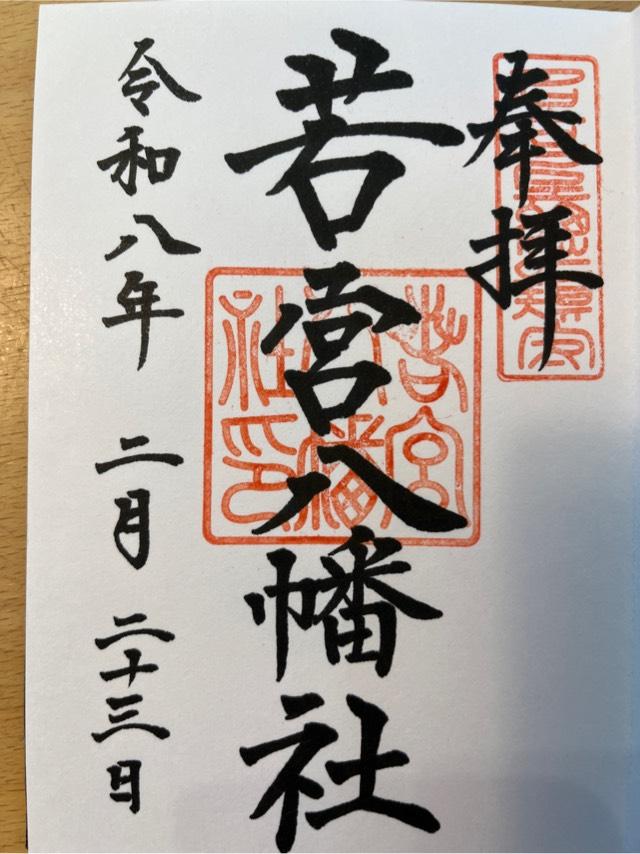 奉拝
若宮八幡社
若宮八幡社印
令和八年 二月 二十三日